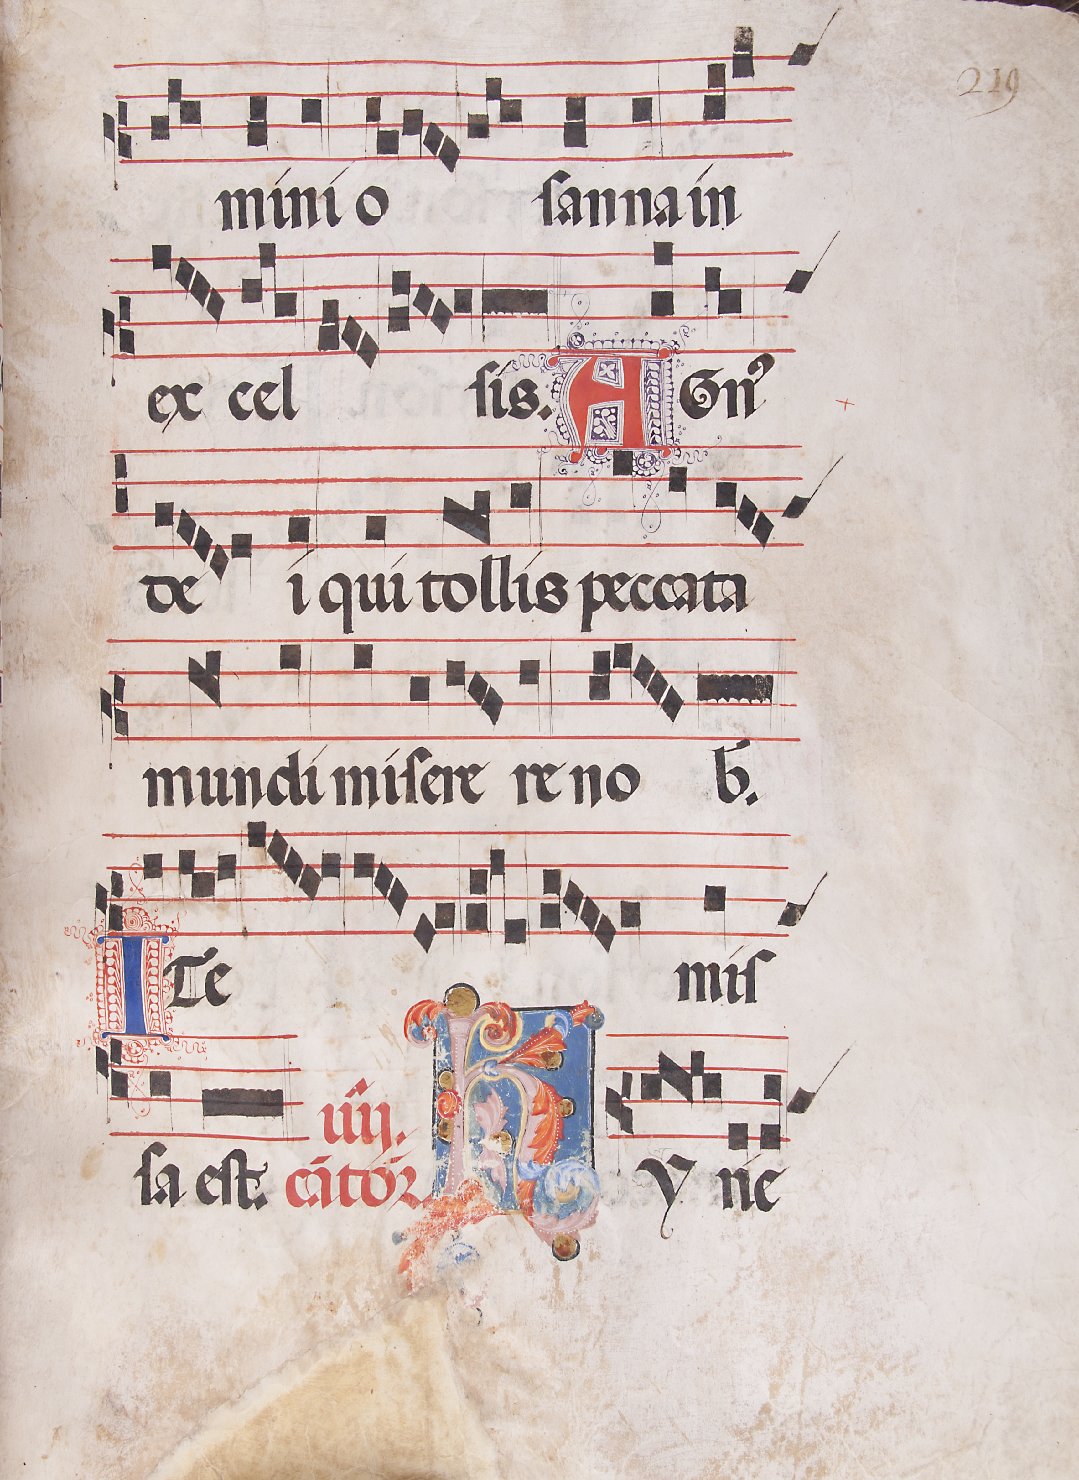 219
mini o sanna in
ex cel sis. A Gnꝰ
de i qui tollis peccata
mundi misere re no b̄.
I Te mis
sa est. iiij. cātoꝝ K y rie